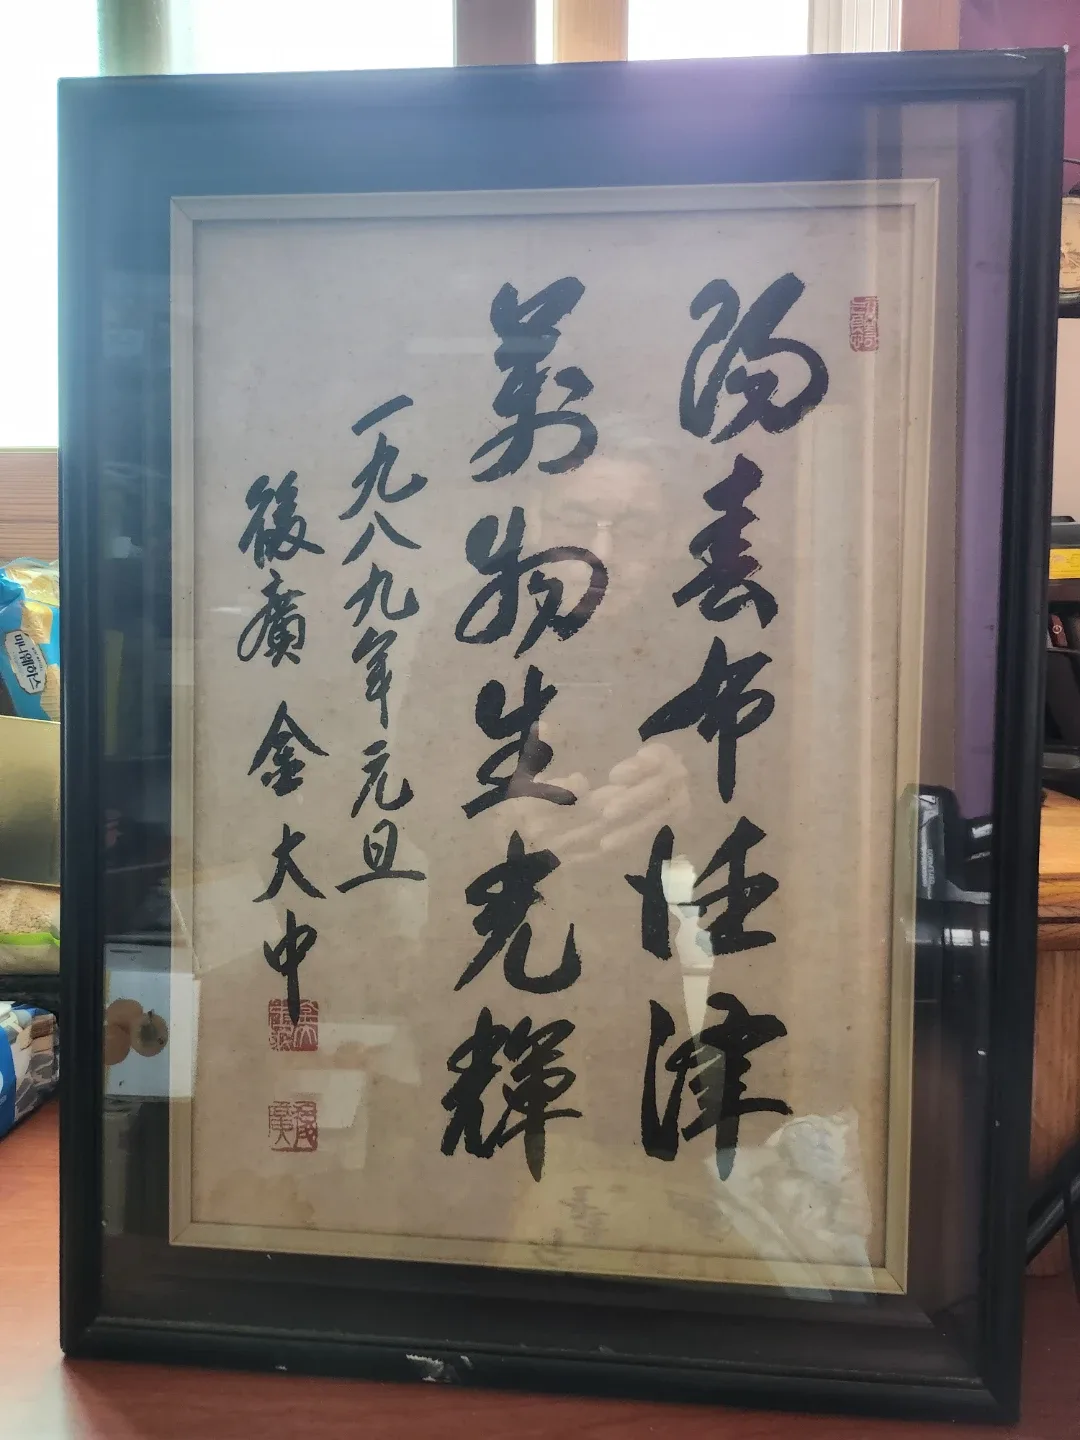 陽春布德澤
萬物生光輝
一九八九年元旦
後廣 金大中
後廣